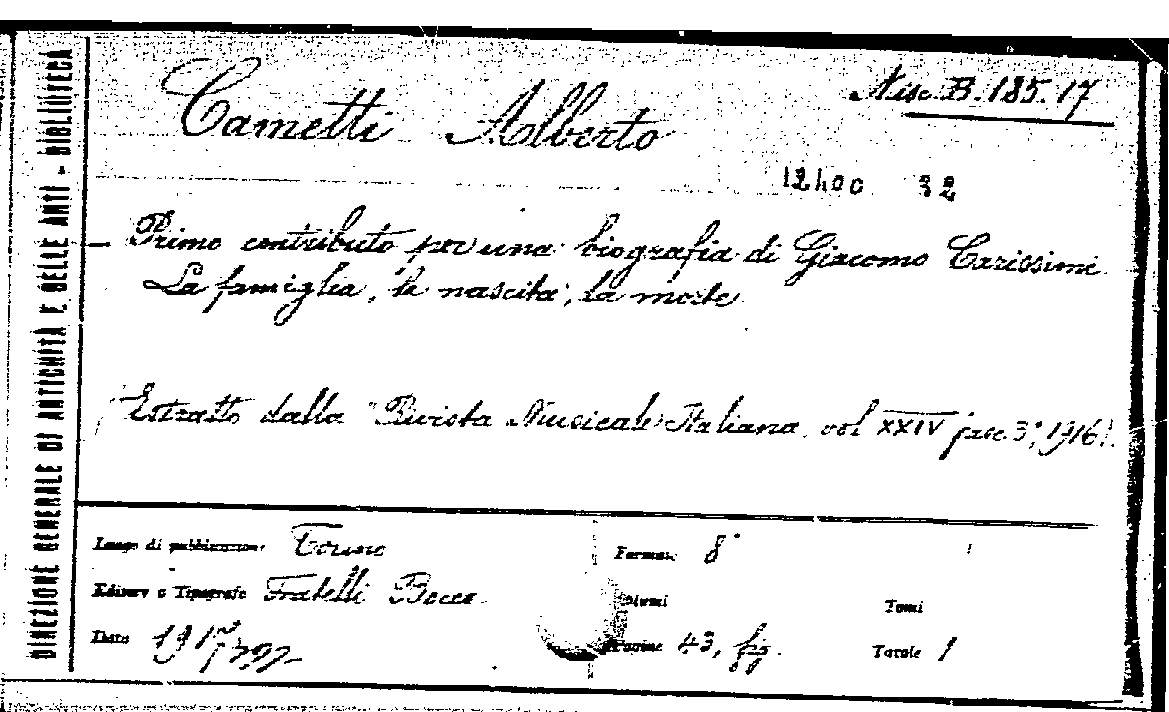 DIREZIONE GENERALE DI ANTICHITÀ E BELLE ARTI - BIBLIOTECA
Cametti Alberto
Misc. B. 185. 17
12400 32
Primo contributo per una biografia di Giacomo Carissimi
La famiglia, la nascita, la morte
(Estratto dalla "Rivista Musicale Italiana, vol XXIV fasc. 3°, 1916).
Luogo di pubblicazione Torino
Formato 8°
Editore o Tipografo Fratelli Bocca
Volumi
Tomi
Data 1917
Pagine 43, fig.
Totale 1